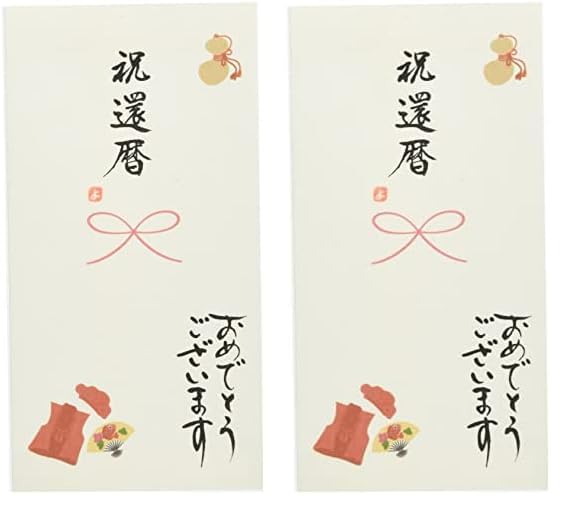 祝還暦
おめでとう
ございます
祝還暦
おめでとう
ございます